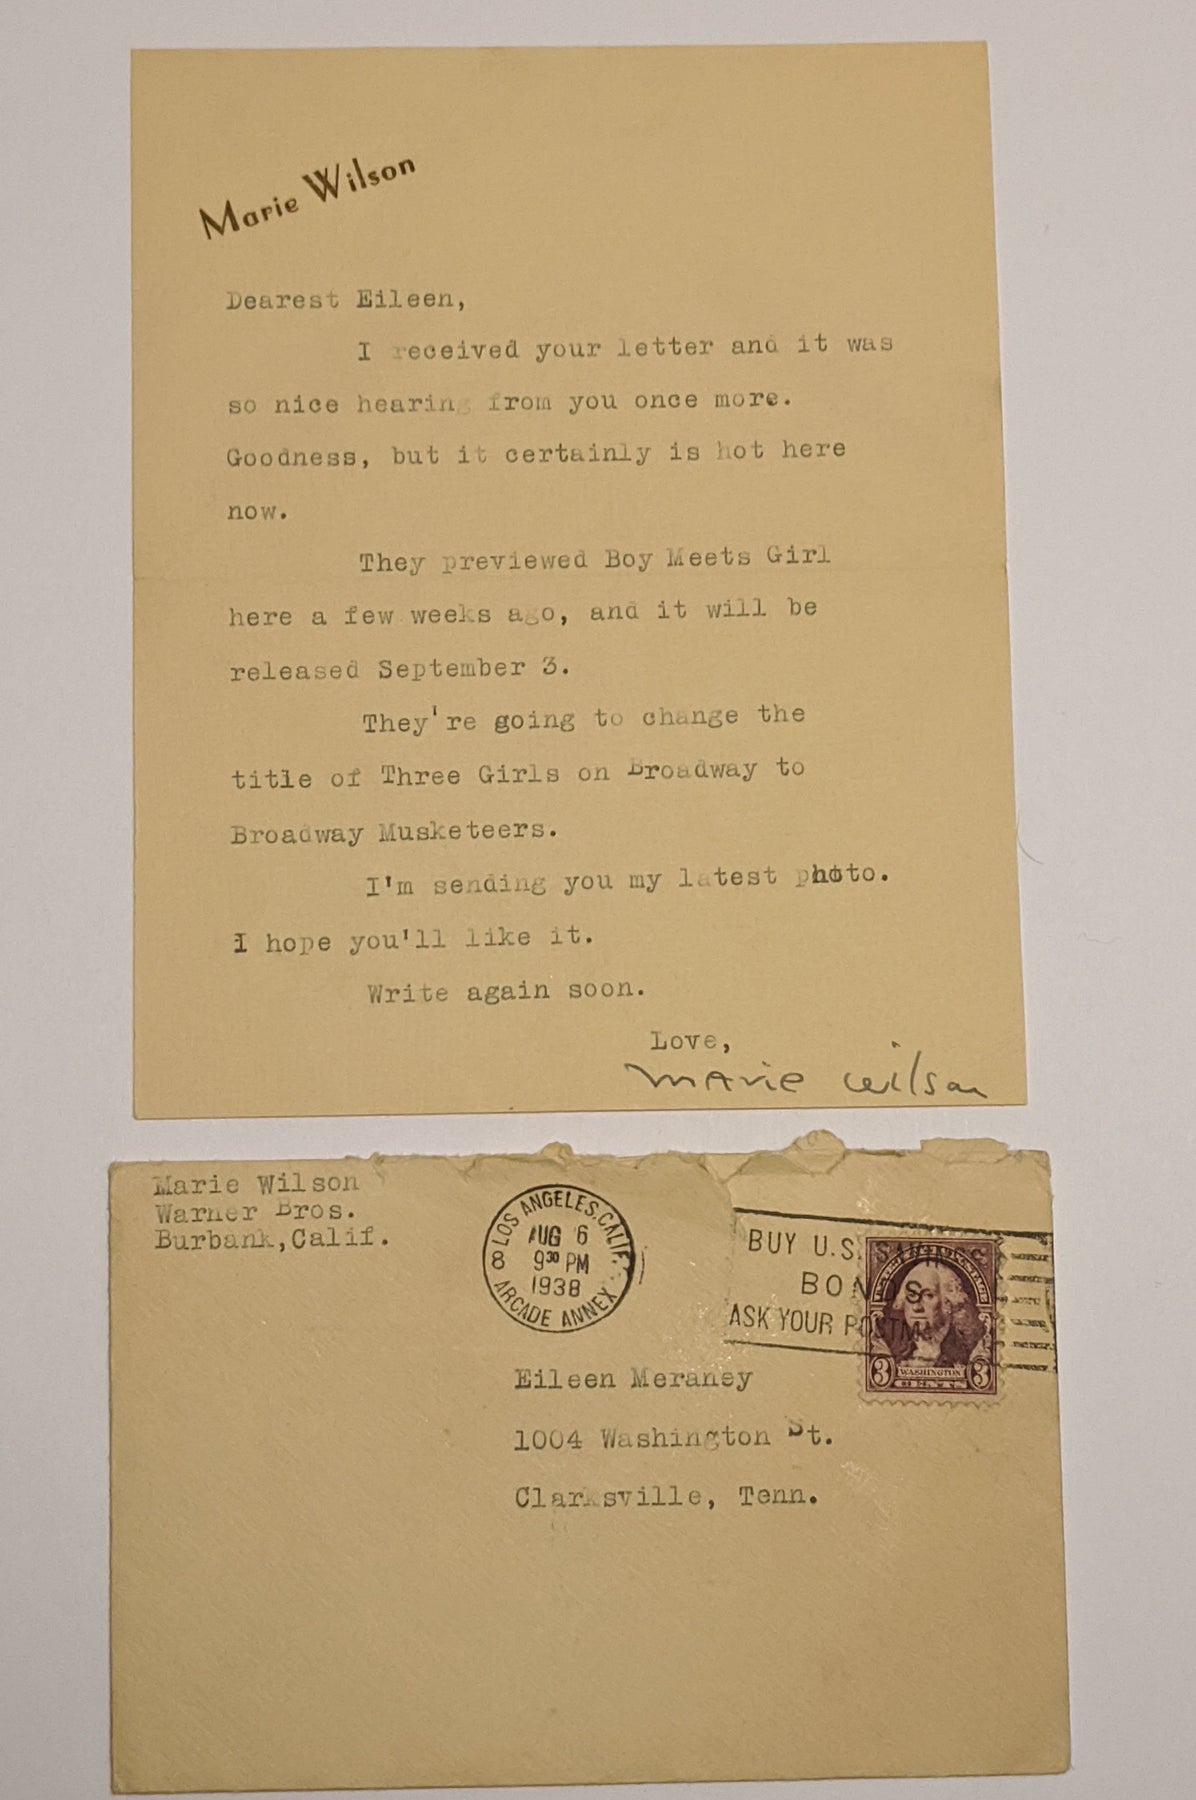 Marie Wilson
Dearest Eileen,
I received your letter and it was
so nice hearing from you once more.
Goodness, but it certainly is hot here
now.
They previewed Boy Meets Girl
here a few weeks ago, and it will be
released September 3.
They're going to change the
title of Three Girls on Broadway to
Broadway Musketeers.
I'm sending you my latest photo.
I hope you'll like it.
Write again soon.
Love,
Marie Wilson
Marie Wilson
Warner Bros.
Burbank,Calif.
LOS ANGELES, CALIF.
AUG 6
8 9 30 PM
1938
ARCADE ANNEX
BUY U.S. SAVINGS
BONDS
ASK YOUR POSTMASTER
3 WASHINGTON 3
Eileen Meraney
1004 Washington St.
Clarksville, Tenn.